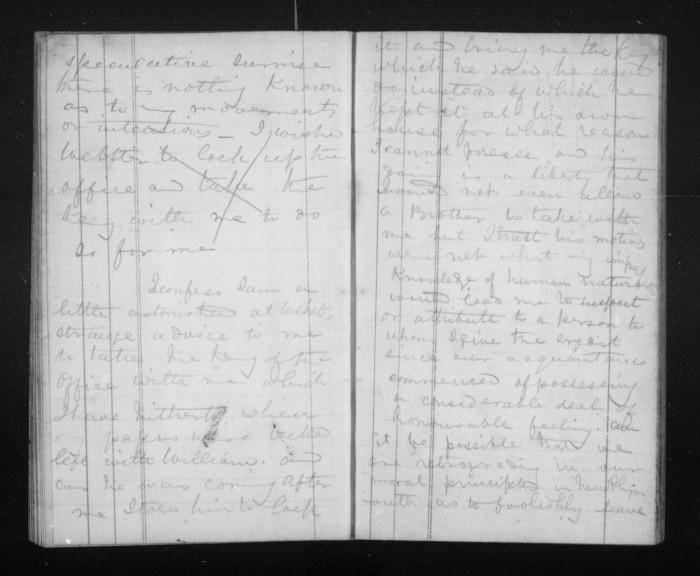 speculative surmise
there is nothing known
as to my movements
or intentions _ I wished
Webster to lock up the
office and take the
key with me to do
so for me
I confess I am a
little astonished at Websters
strange advice to me
to take the key of the
office with me which
I have hitherto when
my papers were locked
left with William. and
as he was coming after
me I told him to lock
it and bring me the key
which he said he would
do instead of which he
kept it at his own
house for what reason
I cannot foresee and his
is a liberty that
I would not even allow
a Brother to take with
me but I trust his motives
were not what my
knowledge of human nature
would lead me to suspect
or attribute to a person to
whom I give the credit
since our acquaintance
commenced of possessing
a considerable deal of
honourable feeling. can
it be possible that we
are retrograding in our
moral principles in
as to foolishly leave